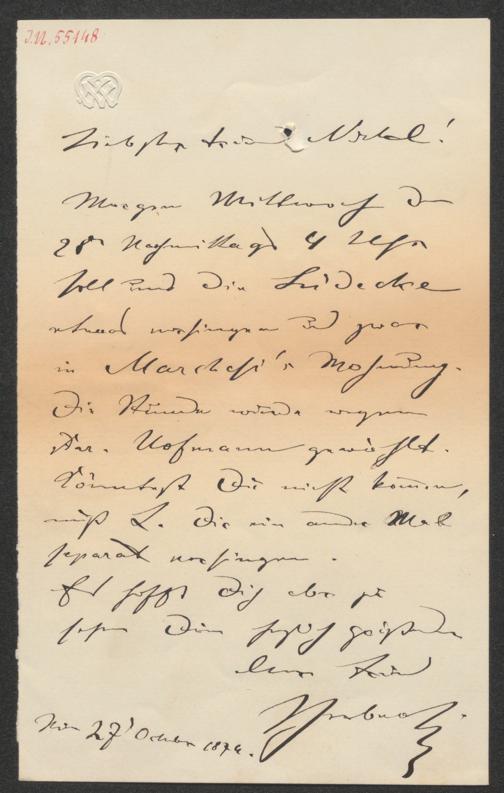 I.N. 55148
Liebster Freund Nickel!
Morgen Mittwoch den
28t Nachmittags 4 Uhr
soll uns die Lüdecke
etwas vorsingen und zwar
in Marchesi's Wohnung.
Die Stunde wurde wegen
Hofmann gewählt.
Könntest Du nicht kommen,
muß L. Dir ein ander Mal
separat vorsingen.
Es hofft Dich aber zu
sehen Dein herzlich grüßender
Freund
Herbeck
Wien 27t October 1874.